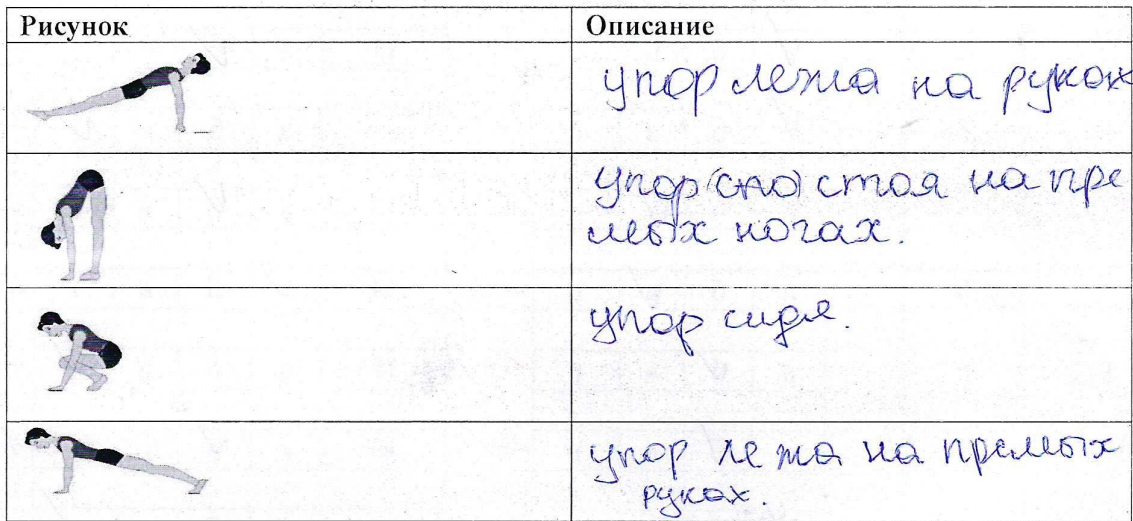 Рисунок
Описание
упор лежа на руках
упор (сто) стоя на пре
мых ногах.
упор сидя.
упор лежа на премых
руках.